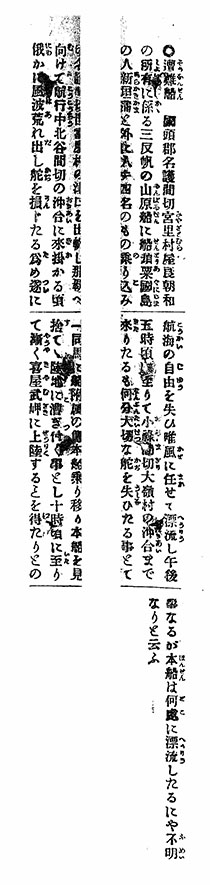 ◎遭難船 國頭郡名護間切宮里村屋良朝和
の所有に係る三反帆の山原船に船頭粟國島
の人新垣蒲と外に四名のもの乗り込み
宮里村の津口を出帆し那覇へ
向けて航行中北谷間切の沖合に來掛かる頃
俄かに風波荒れ出し舵を損じたる爲め遂に
航海の自由を失ひ唯風に任せて漂流し午後
五時頃に至りて小祿間切大嶺村の沖合まで
來りたるも何分大切な舵を失ひたる事とて
一同は船附屬の傳本船に乗り移り本船を見
捨て陸地に漕ぎ付く事とし十時頃に至り
て漸く喜屋武岬に上陸するとを得たりとの
事なるが本船は何處に漂流したるにや不明
なりと云ふ